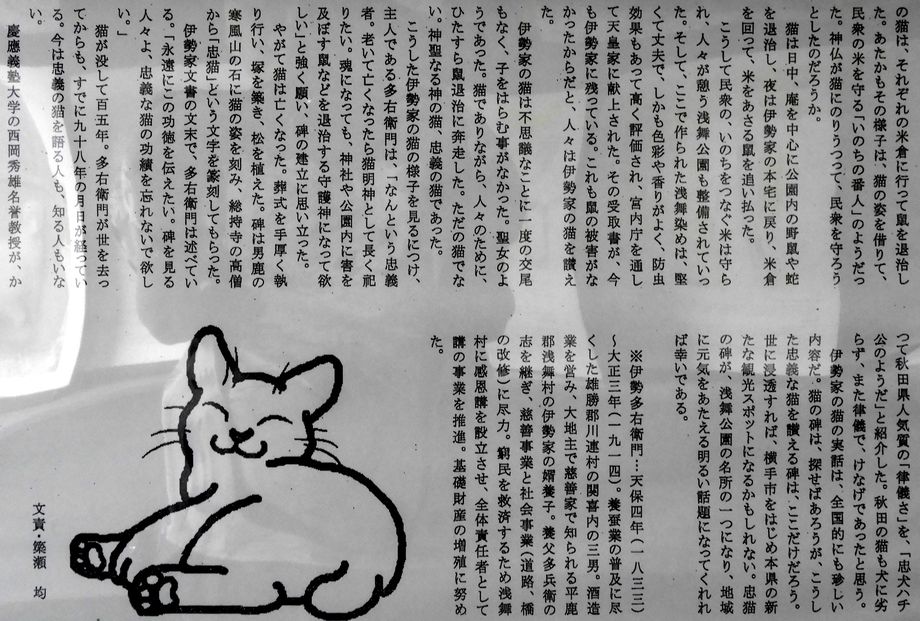 の猫は、それぞれの米倉に行って鼠を退治し
た。あたかもその様子は、猫の姿を借りて、
民衆の米を守る「いのちの番人」のようだっ
た。神仏が猫にのりうつって、民衆を守ろう
としたのだろうか。
猫は日中、庵を中心に公園内の野鼠や蛇
を退治し、夜は伊勢家の本宅に戻り、米倉
を回って、米をあさる鼠を追い払った。
こうして民衆の、いのちをつなぐ米は守ら
れ、人々が憩う浅舞公園も整備されていっ
た。そして、ここで作られた浅舞染めは、堅
くて丈夫で、しかも色彩や香りがよく、防虫
効果もあって高く評価され、宮内庁を通し
て天皇家に献上された。その受取書が、今
も伊勢家に残っている。これも鼠の被害がな
かったからだと、人々は伊勢家の猫を讃え
た。
伊勢家の猫は不思議なことに一度の交尾
もなく、子をはらむ事がなかった。聖女のよ
うであった。猫でありながら、人々のために、
ひたすら鼠退治に奔走した。ただの猫でな
い。神聖なる神の猫、忠義の猫であった。
こうした伊勢家の猫の様子を見るにつけ、
主人である多右衛門は、「なんという忠義
者。老いて亡くなったら猫明神として長く祀
りたい。魂になっても、神社や公園内に害を
及ぼす鼠などを退治する守護神になって欲
しい」と強く願い、碑の建立に思い立った。
やがて猫は亡くなった。葬式を手厚く執
り行い、塚を築き、松を植えた。碑は男鹿の
寒風山の石に猫の姿を刻み、総持寺の高僧
から「忠猫」という文字を篆刻してもらった。
伊勢家文書の文末で、多右衛門は述べてい
る。「永遠にこの功徳を伝えたい。碑を見る
人々よ、忠義な猫の功績を忘れないで欲し
い。」
猫が没して百五年。多右衛門が世を去っ
てからも、すでに九十八年の月日が経ってい
る。今は忠義の猫を語る人も、知る人もいな
い。
慶應義塾大学の西岡秀雄名誉教授が、か
つて秋田県人気質の「律儀さ」を、「忠犬ハチ
公のようだ」と紹介した。秋田の猫も犬に劣
らず、また律儀で、けなげであったと思う。
伊勢家の猫の実話は、全国的にも珍しい
内容だ。猫の碑は、探せばあろうが、こうし
た忠義な猫を讃える碑は、ここだけだろう。
世に浸透すれば、横手市をはじめ本県の新
たな観光スポットになるかもしれない。忠猫
の碑が、浅舞公園の名所の一つになり、地域
に元気をあたえる明るい話題になってくれれ
ば幸いである。
※伊勢多右衛門…天保四年（一八三三）
～大正三年（一九一四）。養蚕業の普及に尽
くした雄勝郡川連村の関喜内の三男。酒造
業を営み、大地主で慈善家で知られる平鹿
郡浅舞村の伊勢家の婿養子。養父多兵衛の
志を継ぎ、慈善事業と社会事業（道路、橋
の改修）に尽力。窮民を救済するため浅舞
村に感恩講を設立させ、全体責任者として
講の事業を推進。基礎財産の増殖に努め
た。
文責・簗瀬 均